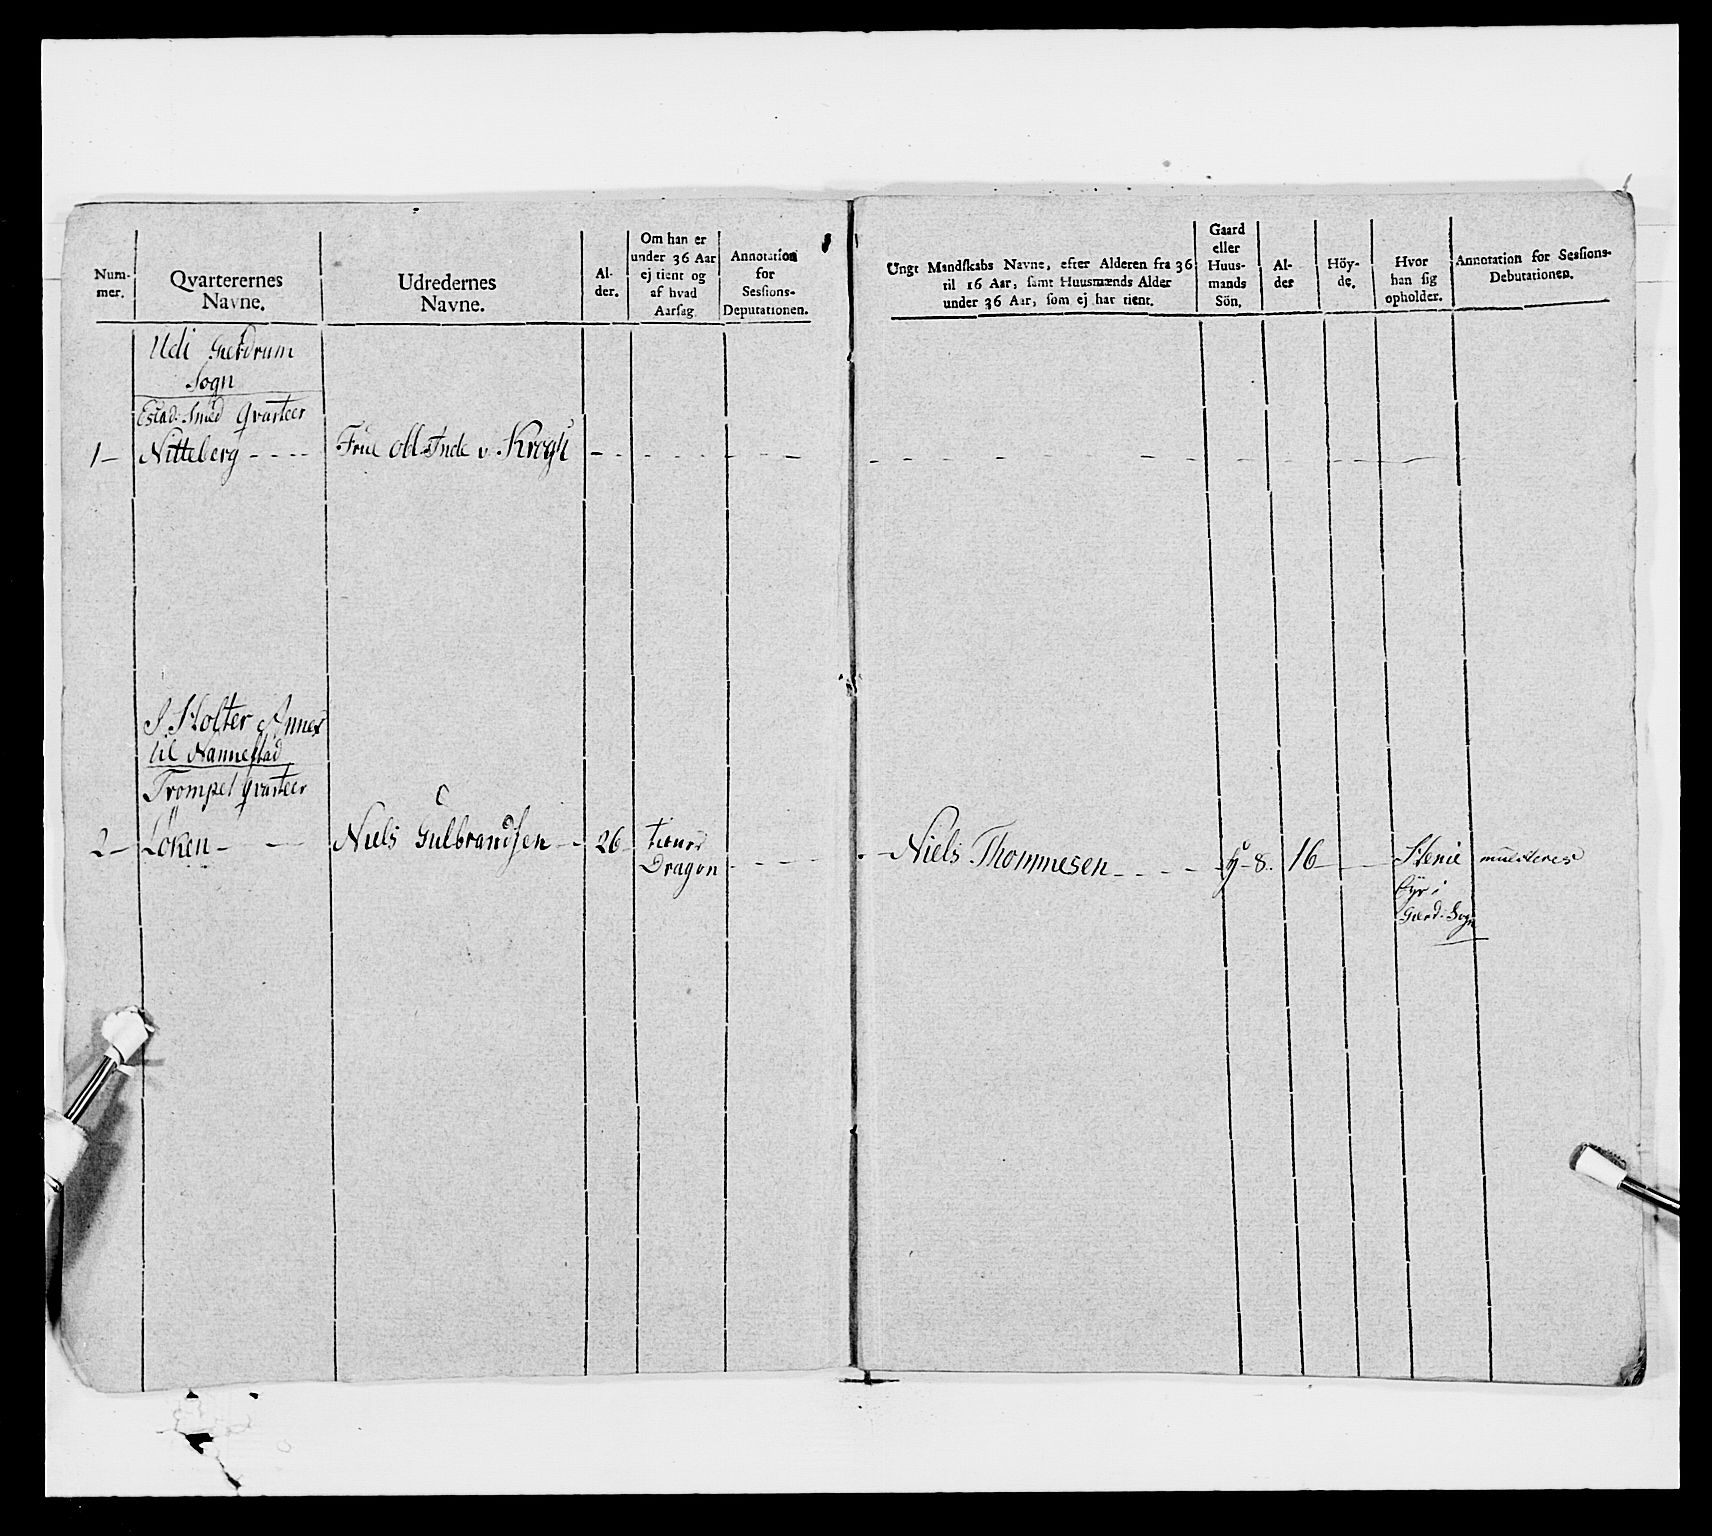 Num-
mer.
Qvarterernes
Navne.
Udredernes
Navne.
Al-
der.
Om han er
under 36 Aar
ej tient og
af hvad
Aarsag
Annotation
for
Sessions-
Deputationen.
Ungt Mandskabs Navne, efter Alderen fra 36
til 16 Aar, samt Huusmænds Alder
under 36 Aar, som ej har tient.
Gaard
eller
Huus-
mands
Sön.
Al-
der
Höy-
de.
Hvor
han sig
opholder.
Annotation for Sessions-
Debutationen.
Udi Gierdrum
Sogn
Estad: Smed Qvarteer
1 - Nitteberg - - - - Frue Obl. v. Krogh - - - - - -
I Holter Annex
til Nannestad
Trompet Qvarteer
2 - Löken - - Niels Gulbrandsen - - 26 tiener
Dragon - - - -
Niels Thommesen - - - - 8. 16 - - muesteres
i
Gierd: Sogn